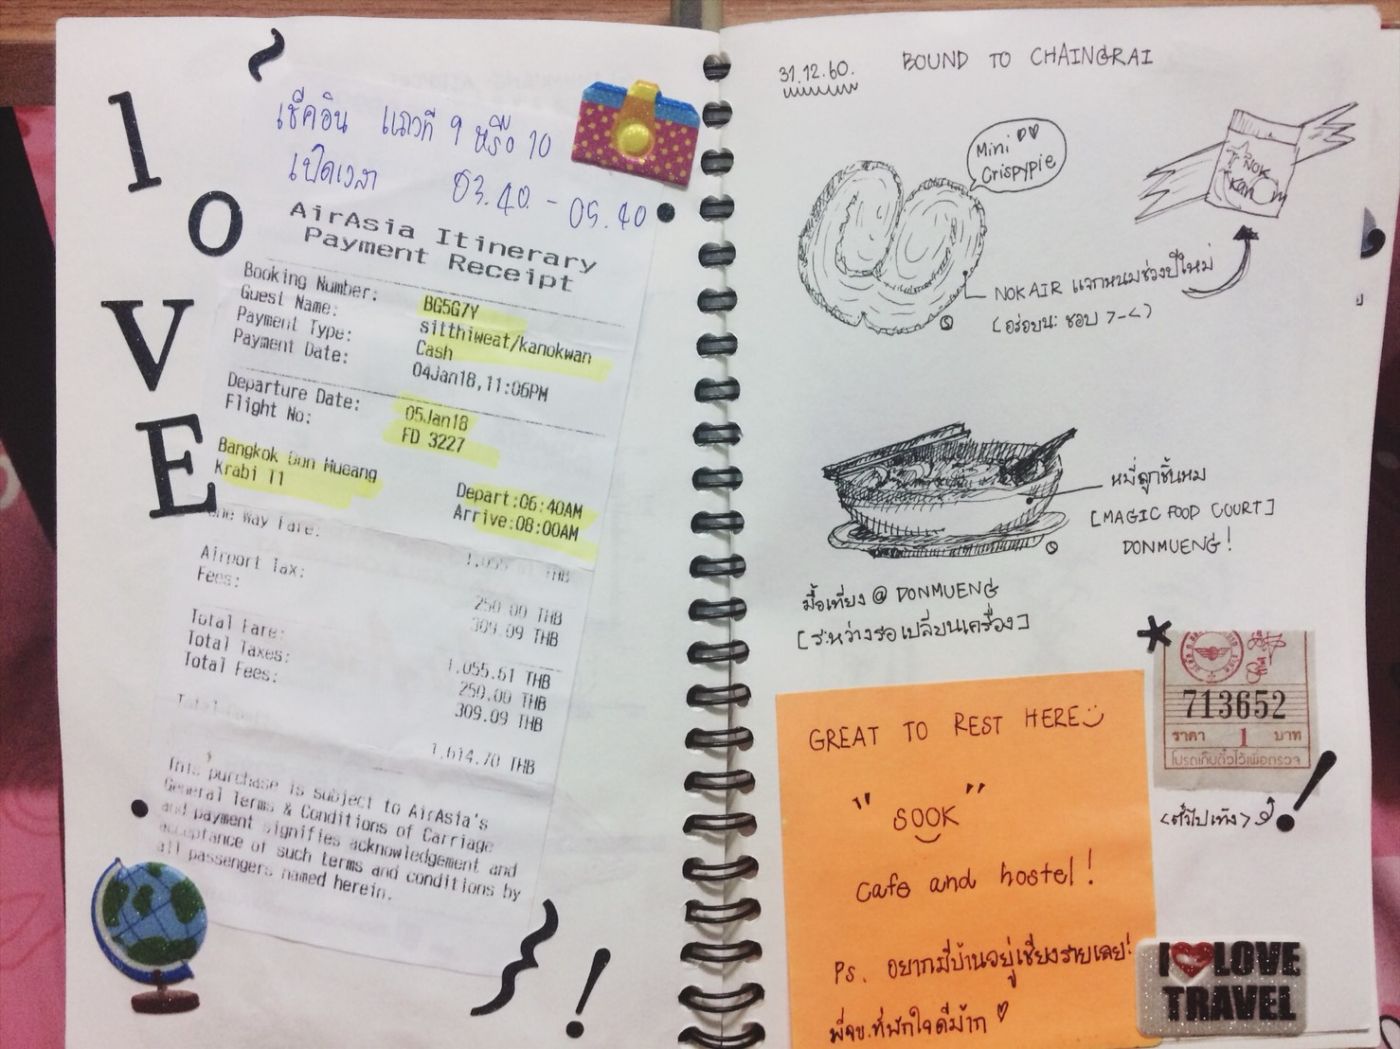 love
เช็คอิน แถวที่ 9 หรือ 10
เปิดเวลา 03.40 - 05.40
AirAsia Itinerary
Payment Receipt
Booking Number: BG5G7Y
Guest Name: sitthiweat/kanokwan
Payment Type: Cash
Payment Date: 04Jan18,11:06PM
Departure Date: 05Jan18
Flight No: FD 3227
Bangkok Don Mueang
Krabi T1
Depart:06:40AM
Arrive:08:00AM
One Way Fare:
Airport Tax: 250.00 THB
Fees: 309.09 THB
Total Fare: 1,055.61 THB
Total Taxes: 250.00 THB
Total Fees: 309.09 THB
1,614.70 THB
This purchase is subject to AirAsia's
General Terms & Conditions of Carriage
and payment signifies acknowledgement and
acceptance of such terms and conditions by
all passengers named herein.
31.12.60.
BOUND TO CHAINGRAI
Mini
Crispypie
NOK
NOKAIR แจกหนมช่วงปีใหม่
(อร่อยนะ ชอบ >~<)
หมี่ลูกชิ้นหม
[MAGIC FOOD COURT]
DONMUENG!
มื้อเที่ยง @ DONMUENG
[ระหว่างรอเปลี่ยนเครื่อง]
GREAT TO REST HERE
"SOOK"
Cafe and hostel!
Ps. อยากมีบ้านอยู่เชียงรายเลย!
713652
ราคา 1 บาท
โปรดเก็บตั๋วไว้เพื่อตรวจ
I LOVE
TRAVEL